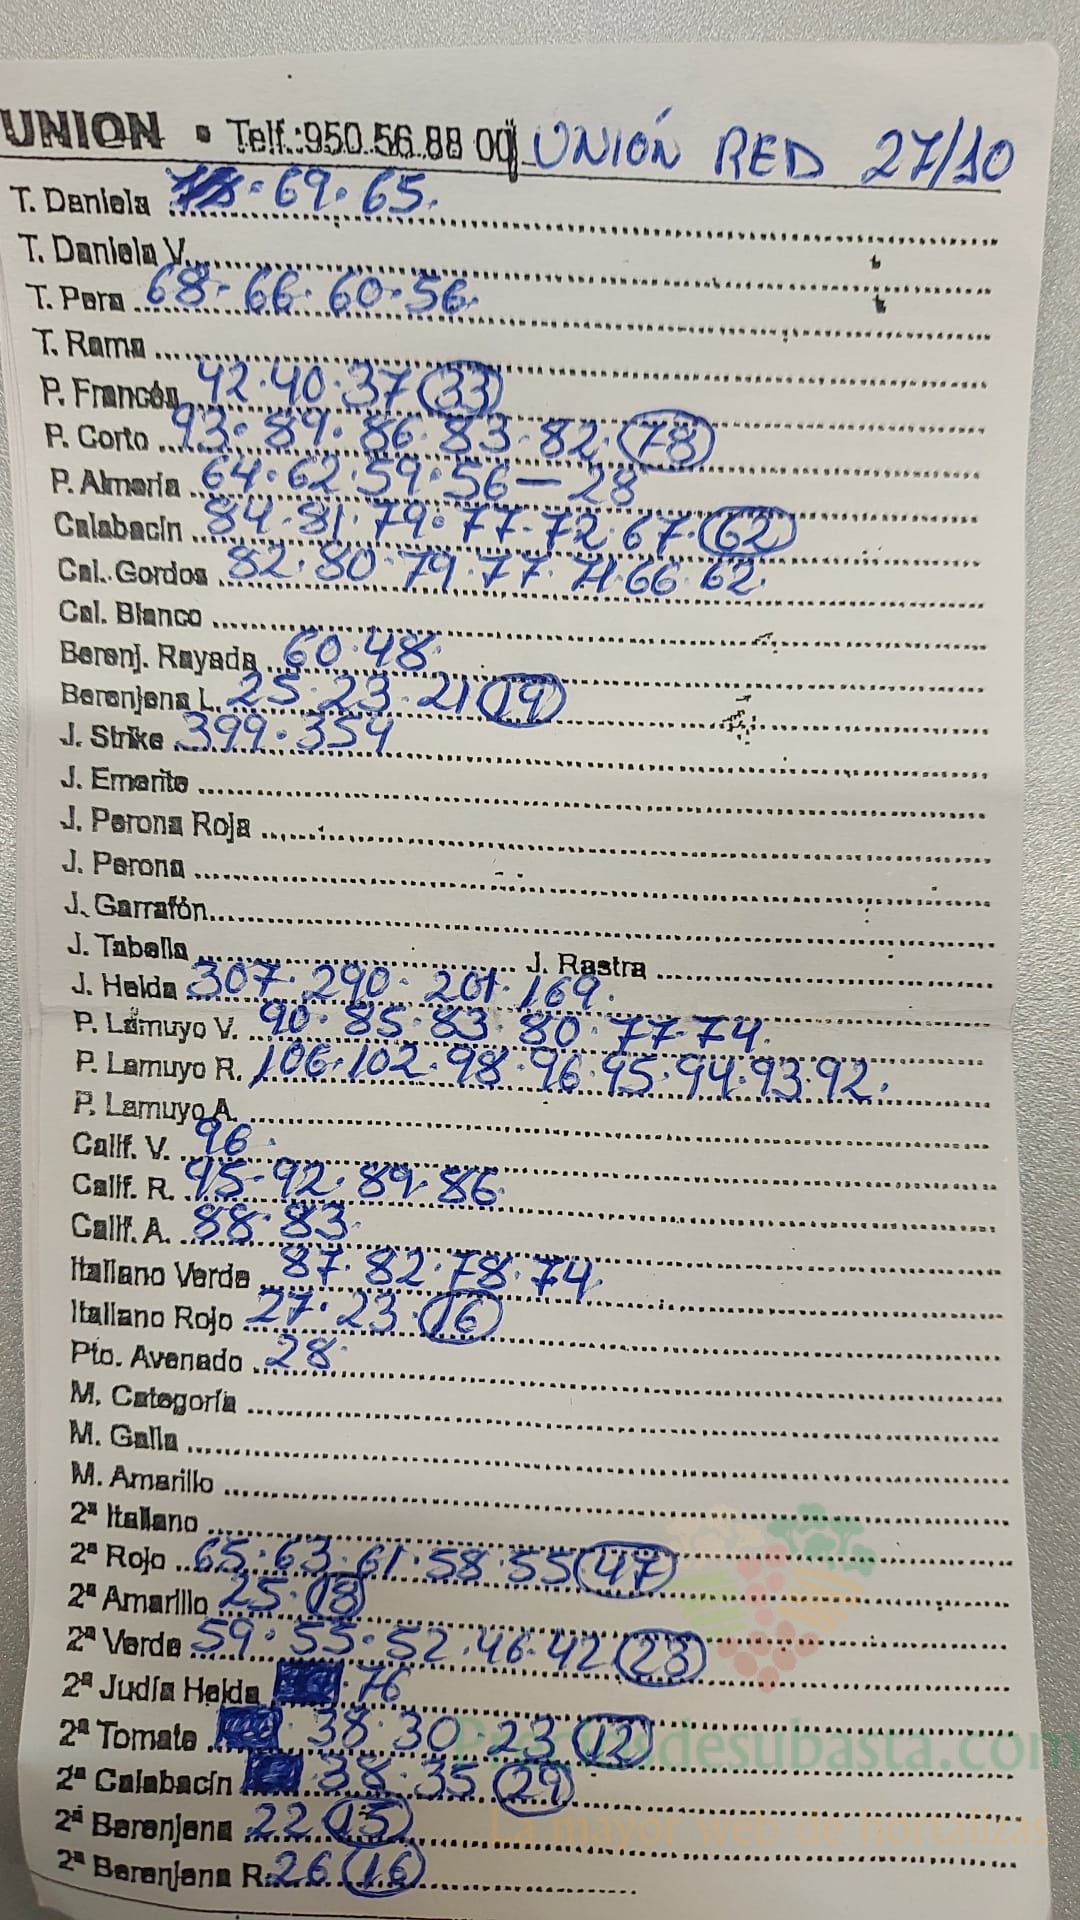 UNION • Telf.:950.56.88 00 UNIÓN RED 27/10
T. Daniela 69. 65.
T. Daniela V.
T. Pera 68. 66. 60. 56.
T. Rama
P. Francés 42. 40. 37 33
P. Corto 93. 89. 86. 83. 82. 78
P. Almería 64. 62. 59. 56 — 28
Calabacín 84. 81. 79. 77. 72. 67. 62
Cal. Gordos 82. 80. 79. 77. 71. 66. 62.
Cal. Blanco
Berenj. Rayada 60. 48.
Berenjena L. 25. 23. 21 19
J. Strike 399. 354
J. Emerite
J. Perona Roja
J. Perona
J. Garrafón
J. Tabella J. Rastra
J. Helda 307. 290. 201. 169.
P. Lamuyo V. 90. 85. 83. 80. 77. 74.
P. Lamuyo R. 106. 102. 98. 96. 95. 94. 93. 92.
P. Lamuyo A.
Calif. V. 96.
Calif. R. 95. 92. 89. 86.
Calif. A. 88. 83.
Italiano Verde 87. 82. 78. 74.
Italiano Rojo 27. 23. 16
Pto. Avenado 28.
M. Categoría
M. Galia
M. Amarillo
2ª Italiano
2ª Rojo 65. 63. 61. 58. 55 47
2ª Amarillo 25. 18
2ª Verde 59. 55. 52. 46. 42 28
2ª Judía Helda 76
2ª Tomate 38. 30. 23 12
2ª Calabacín 38. 35 29
2ª Berenjena 22 15
2ª Berenjena R. 26 16
Preciosdesubasta.com
La mayor web de hortalizas